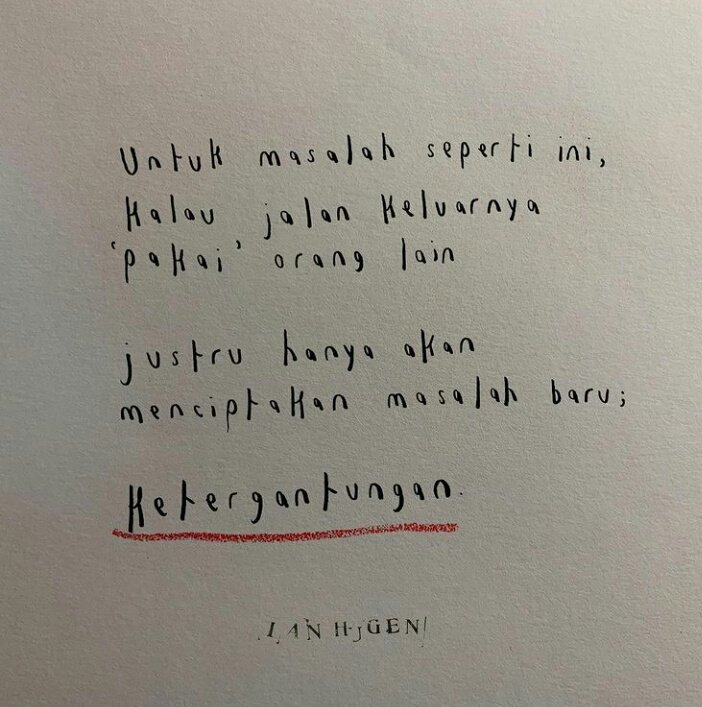 Untuk masalah seperti ini,
Kalau jalan Keluarnya
'pakai' orang lain
justru hanya akan
menciptakan masalah baru;
Ketergantungan.
IAN HUGEN